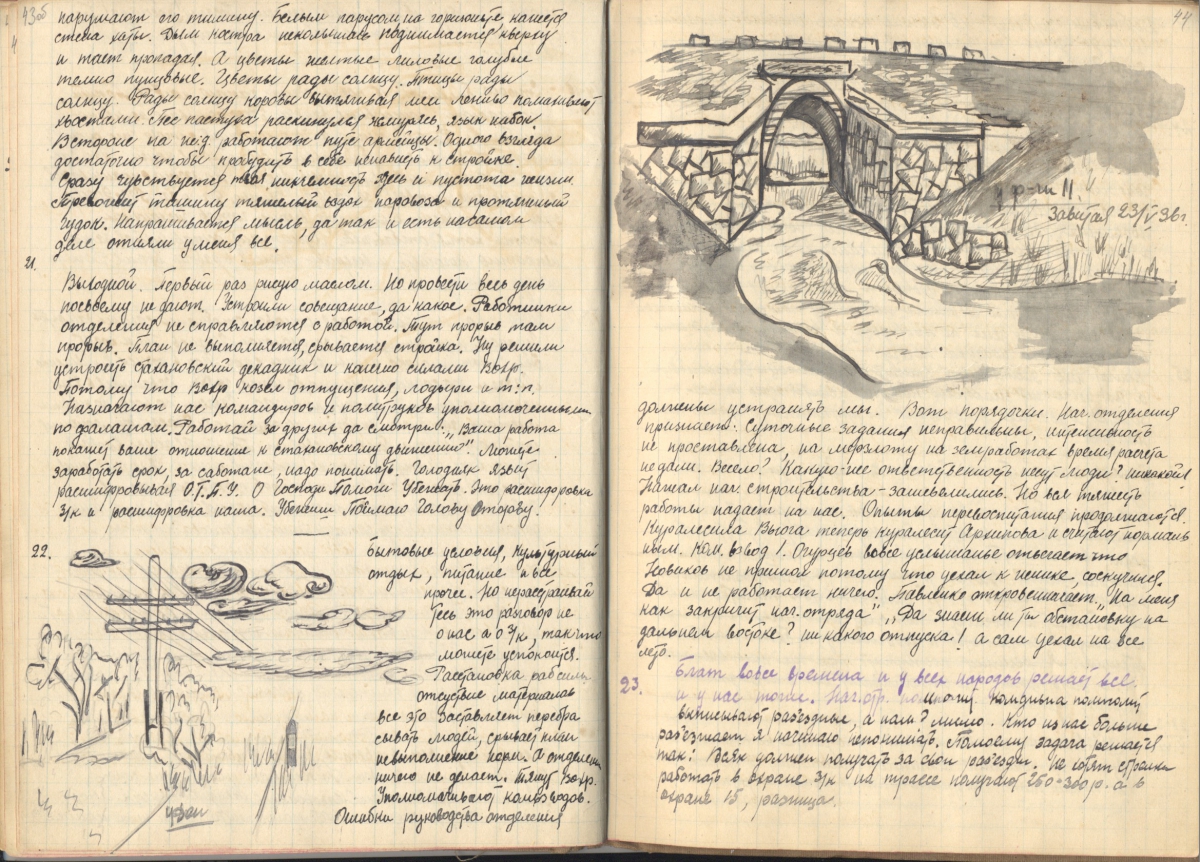 43об
нарушают его тишину. Белым парусом, на горизонте кажется
стена хаты. Дым костра неколышась поднимается кверху
и тает пропадая. А цветы желтые лиловые голубые
темно пунцовые. Цветы рады солнцу. Птицы рады
солнцу. Рады солнцу коровы вытягивая шеи лениво помахивают
хвостами. Пес пастуха раскинулся жмурясь, язык набок.
Встороне на ж.д. работают путе армейцы. Одного взгляда
достаточно чтобы пробудить в себе ненависть к стройке.
Сразу чувствуется твоя никчемность здесь и пустота жизни.
Тревожит тишину тяжелый вздох паровоза и протяжный
гудок. Напрашивается мысль, да так и есть насамом
деле отняли у меня все.
21.
Выходной. Первый раз рисую маслом. Но провести весь день
посвоему не дают. Устроили совещание, да какое. Работники
отделения не справляются с работой. Тут прорыв там
прорыв. План не выполняется, срывается стройка. Ну решили
устроить стахановский декадник и конечно силами Вохр.
Потому что Вохр козел отпущения, лодыри и т:п.
Назначают нас командиров и политруков уполномоченными
по фалангам. Работай за других да смотри: „Ваша работа
покажет ваше отношение к стахановскому движению". Можете
заработать срок, за саботаж, надо понимать. Голодняк язвит
расшифровывая О.Г.П.У. О Господи Помоги Убежать. Это расшифровка
З/к и расшифровка наша. Убежиш Поймаю Голову Оторву.
22.
бытовые условия, культурный
отдых, питание и все
прочее. Но нерасстраивай
тесь это разговор не
о нас а о З/к, так что
можете успокоится.
Расстановка раб силы
отсуствие материалов
все это заставляет перебра
сывать людей, срывает план
невыполнение норм. А отделение
ничего не делает. Тянут Вохр.
Уполномачивают комвзводов.
Ошибки руководства отделения
Урал
44
у р-ки II
Завитая 23/V 36г.
должны устранять мы. Вот порядочки. Нач. отделения
признает: Суточные задания неправильны, интенсивность
не проставлена, на мерзлоту на земработах время расчета
не дали. Весело? Какую-же отвественность несут люди? никакой
Нажал нач. строительства - зашевелились. Но вся тяжесть
работы падает на нас. Опыты перевоспитания продолжаются.
Куралесила Вьюга теперь куралесит Архипова и считают нормаль
ным. Ком. взвод 1. Огурцов вовсе услышанье отвечает что
Новиков не пришол потому что уехал к женке, соскучился.
Да и не работает ничего. Павленко откровенничает „На меня
как закричит нач. отряда" „Да знаеш ли ты обстановку на
дальнем востоке? ни какого отпуска! а сам уехал на все
лето.
23.
Блат вовсе времена и у всех народов решает все
и у нас тоже. Нач. отр. помпохоз
выписывают разъездные, а нам? мимо. Кто из нас больше
разъезжает я начинаю непонимать. Помоему задача решается
так: Всяк должен получать за свои разъезды. Не хотят стрелки
работать в охране З/к на трассе получают 250-300 р. а в
охране 15, разница.